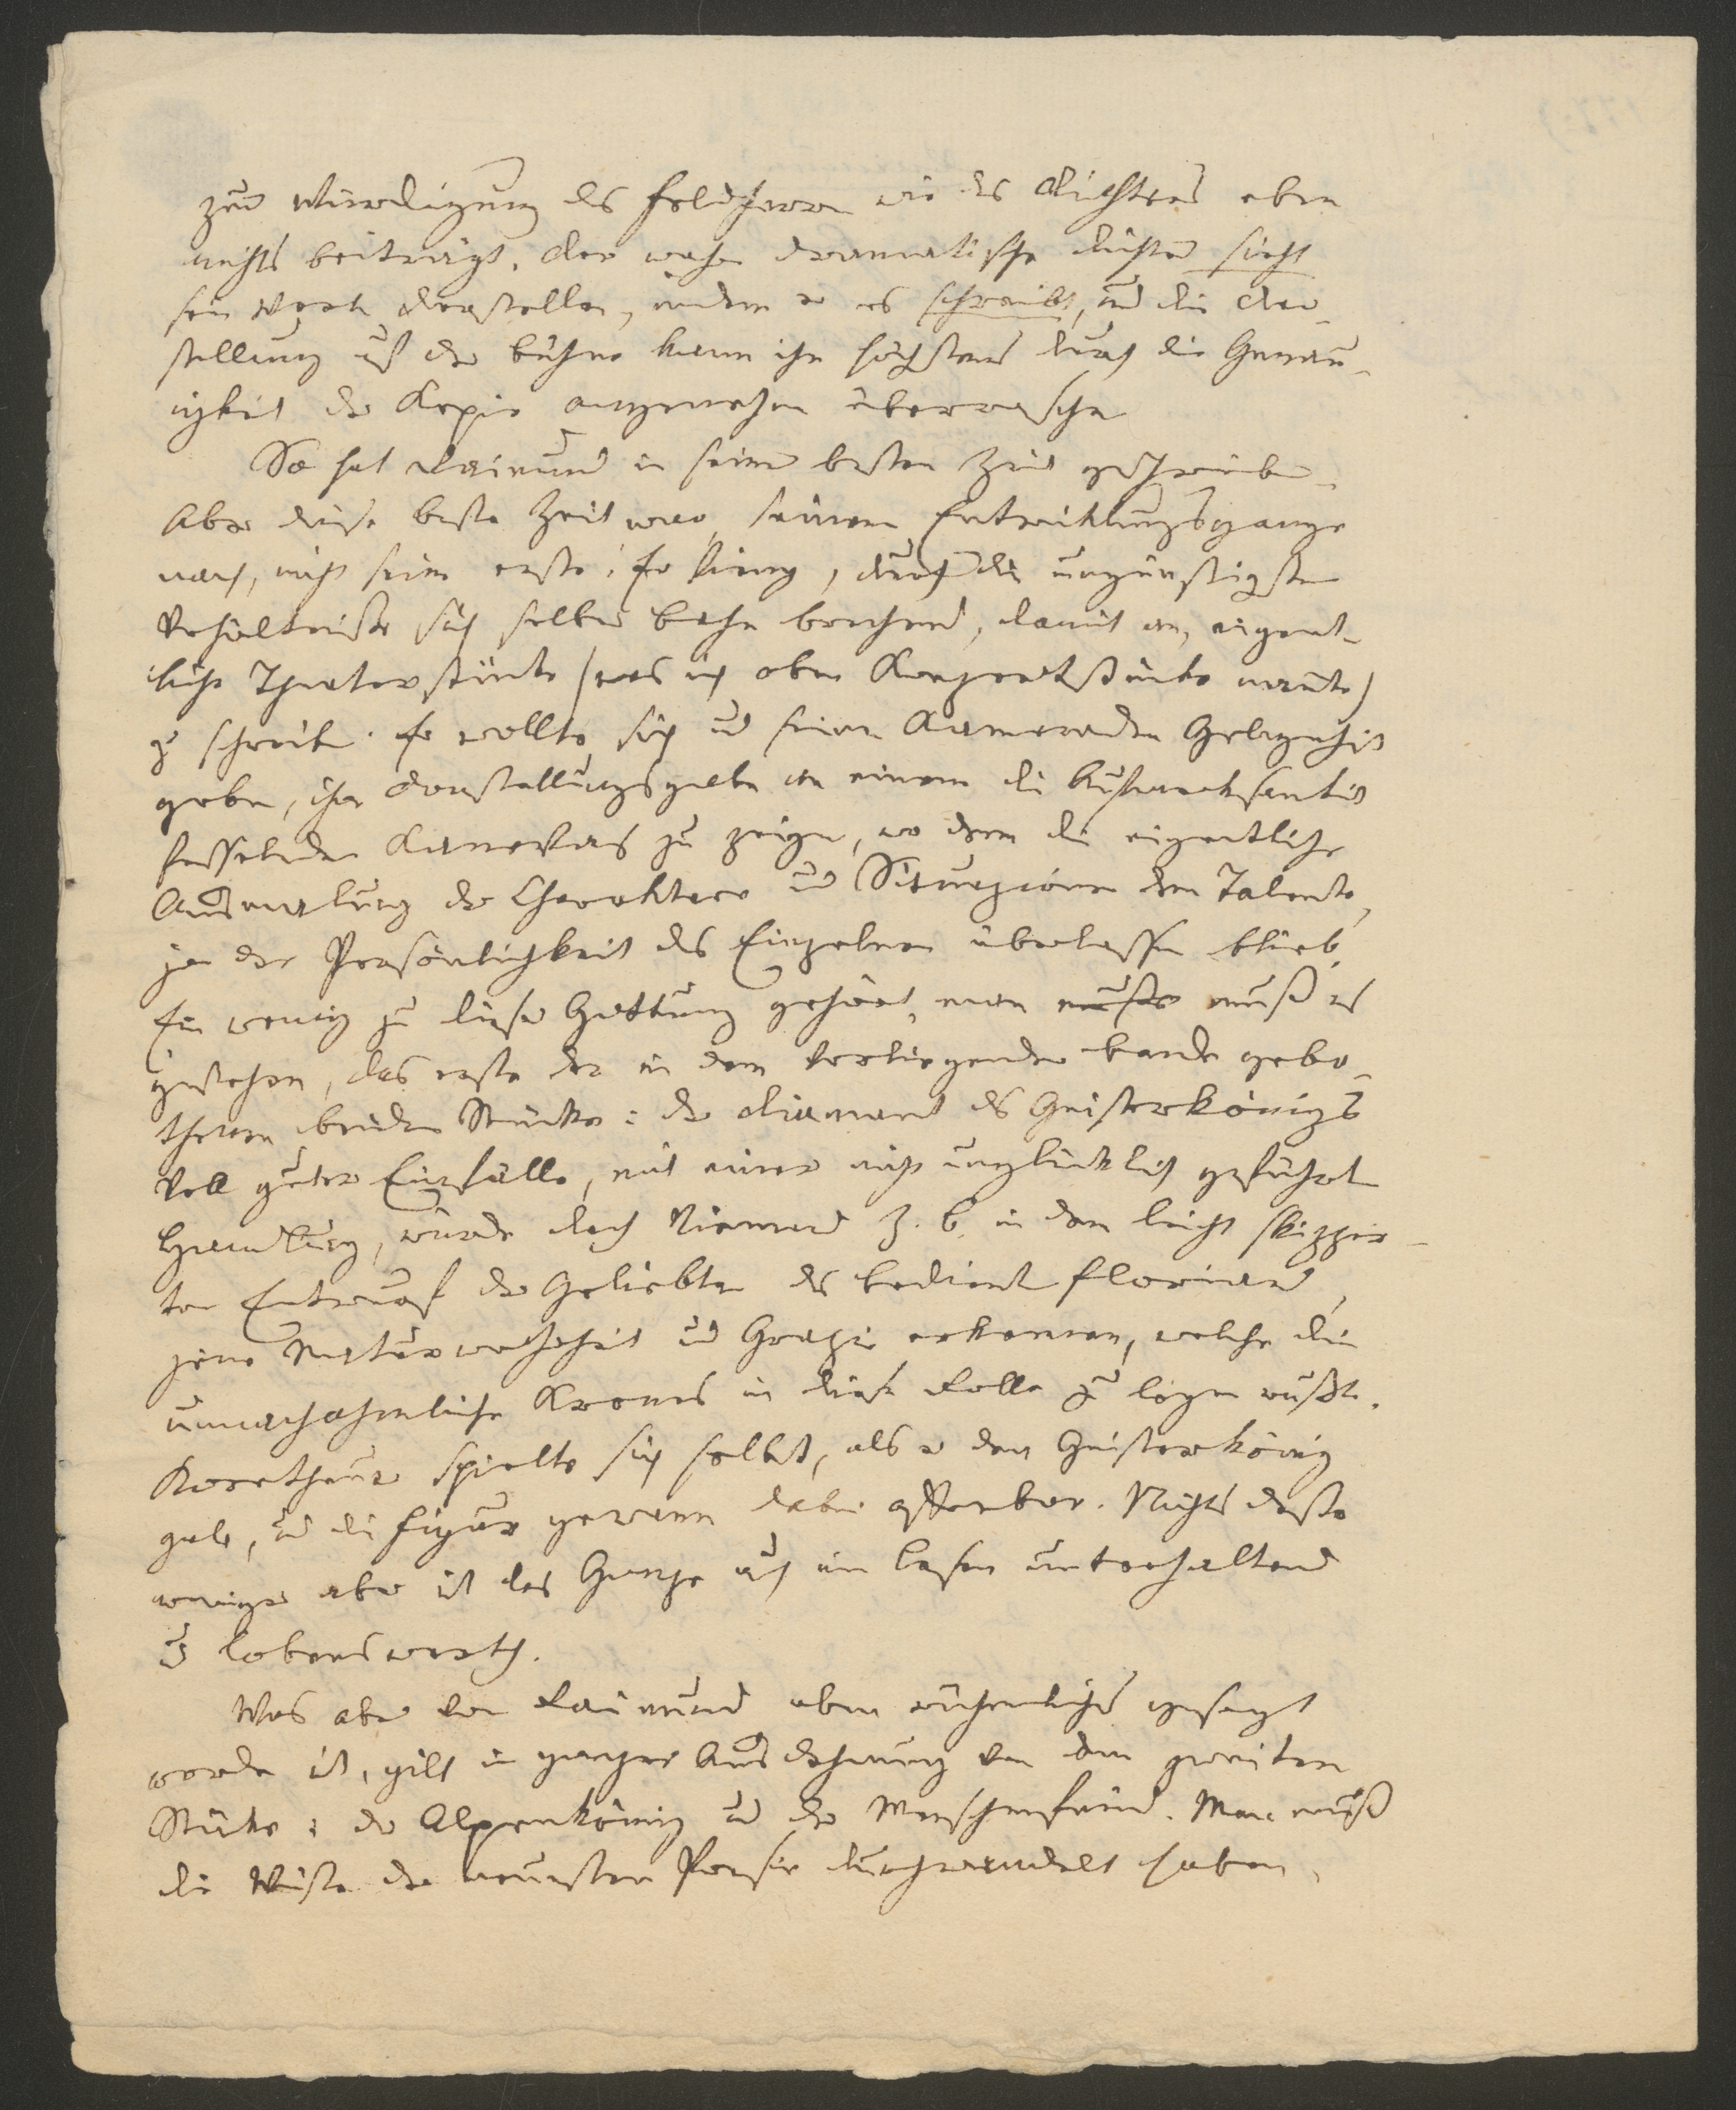 zur Würdigung des Feldherrn wie des Dichters eben
nichts beiträgt. Der wahre dramatische Dichter sieht
sein Werk darstellen, indem er es schreibt, und die Dar-
stellung auf der Bühne kann ihn höchstens durch die Genau-
igkeit der Kopie angenehm überraschen
So hat Raimund in seiner besten Zeit geschrieben.
Aber diese beste Zeit war, seinem Entwicklungsgange
nach, nicht seine erste. Er fieng, durch die ungünstigsten
Verhältnisse sich selber Bahn brechend, damit an, eigent-
liche Theaterstücke (was ich oben Konzertstücke nannte)
zu schreiben. Er wollte sich und seinen Kameraden Gelegenheit
geben, ihre Darstellungsgaben an einem die Aufmerksamkeit
fesselnden Kanevas zu zeigen, wo denn die eigentliche
Ausmalung der Charaktere und Situazionen dem Talente,
ja der Persönlichkeit des Einzelnen überlassen blieb.
Ein wenig zu dieser Gattung gehört, man mußte muß es
gestehen, das erste der in dem vorliegenden Bande gebo-
thenen beiden Stücke: der Diamant des Geisterkönigs
Voll guter Einfälle, mit einer nicht unglücklich geführten
Handlung, würde doch Niemand z. B. in dem leicht skizzir-
ten Entwurf der Geliebten des Bedienten Florian,
jene Naturwahrheit und Grazie erkennen, welche die
unnachahmliche Krones in diese Rolle zu legen wußte.
Korntheuer spielte sich selbst, als er den Geisterkönig
gab, und die Figur gewann dabei offenbar. Nichts desto
weniger aber ist das Ganze auch im Lesen unterhaltend
und lobenswerth.
Was aber von Raimund oben rühmliches gesagt
worden ist, gilt in ganzer Ausdehnung von dem zweiten
Stücke: der Alpenkönig und der Menschenfeind. Man muß
die Wüste der neuesten Poesie durchwandelt haben,